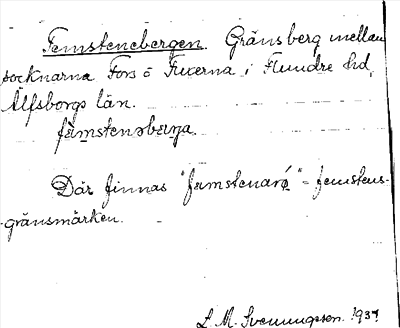 Femstenebergen. Gränsberg mellan
socknarna Fors o Fuxerna i Flundre hd,
Älfsborgs län.
fämstenəberja.
Där finnas "femstenarǫ" - femstens-
gränsmärken.
L. M. Svenungsson. 1937